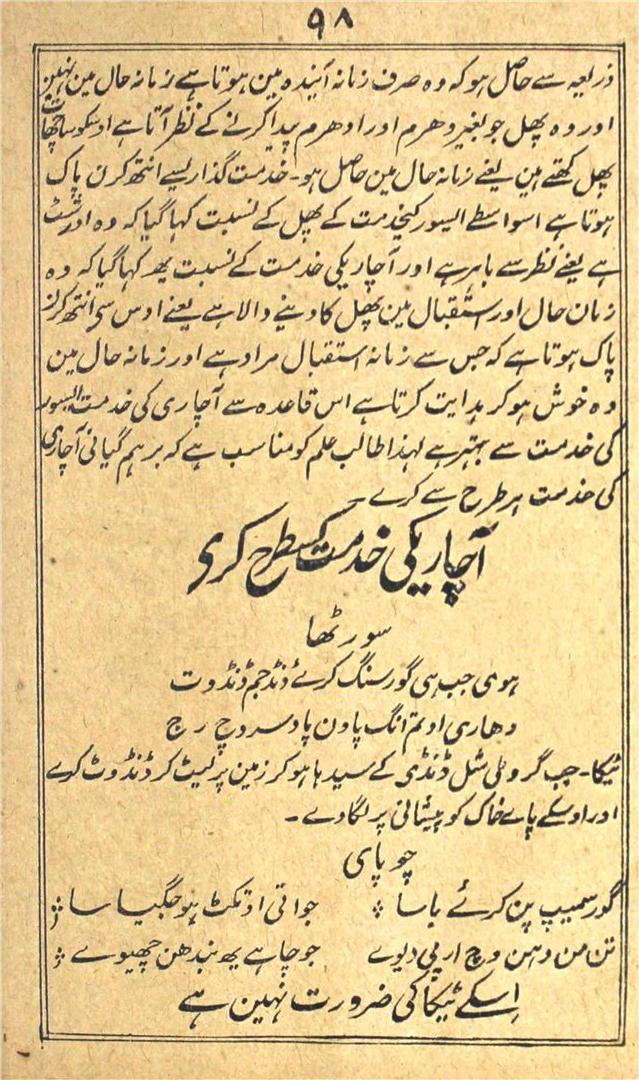 ۹۸
ذریعہ سے حاصل ہو کہ وہ صرف زمانہ آیندہ مین ہوتا ہے زمانہ حال مین نہین
اور وہ پھل جو بغیر دھرم اور ادھرم پیدا کرنے کے نظر آتا ہے اوسکو ساچھات
پھل کہتے ہین یعنے زمانہ حال مین حاصل ہو۔ خدمت گذار یسے انتھ کرن پاک
ہوتا ہے اسواسطے ایسور کیخدمت کے پھل کے نسبت کہا گیا کہ وہ ادرشٹ
ہے یعنے نظر سے باہر ہے اور آچاریکی خدمت کے نسبت یھ کہا گیا کہ وہ
زمان حال اور استقبال مین پھل کا دینے والا ہے یعنے اوس سی انتھ کرن
پاک ہوتا ہے کہ جس سے زمانہ استقبال مراد ہے اور زمانہ حال مین
وہ خوش ہو کر ہدایت کرتا ہے اس قاعدہ سے آچاری کی خدمت ایسور
کی خدمت سے بہتر ہے لہذا طالب علم کو مناسب ہے کہ برہم گیانی آچاری
کی خدمت ہر طرح سے کرے۔
آچاریکی خدمت کسطرح کری
سورٹھا
ہوی جب ہی گور سنگ کرئے دنڈجم ڈنڈوت
دھاری اوتم انگ پاون پادسروج رج
ٹیکا۔ جب گرو ملی مثل ڈنڈی کے سیدھا ہو کر زمین پر لیٹ کر ڈنڈوٹ کرے
اور اوسکے پاے خاک کو پیشانی پر لگاوے۔
چوپای
گور سمیپ پن کرئے باسا ؞ جو اتی اوتکٹ ہو جگیاسا ؞
تن من دہن وچ ارپی دیوے جو چاہے یھ بندھن چھیوے ؞
اسکے ٹیکا کی ضرورت نہین ہے